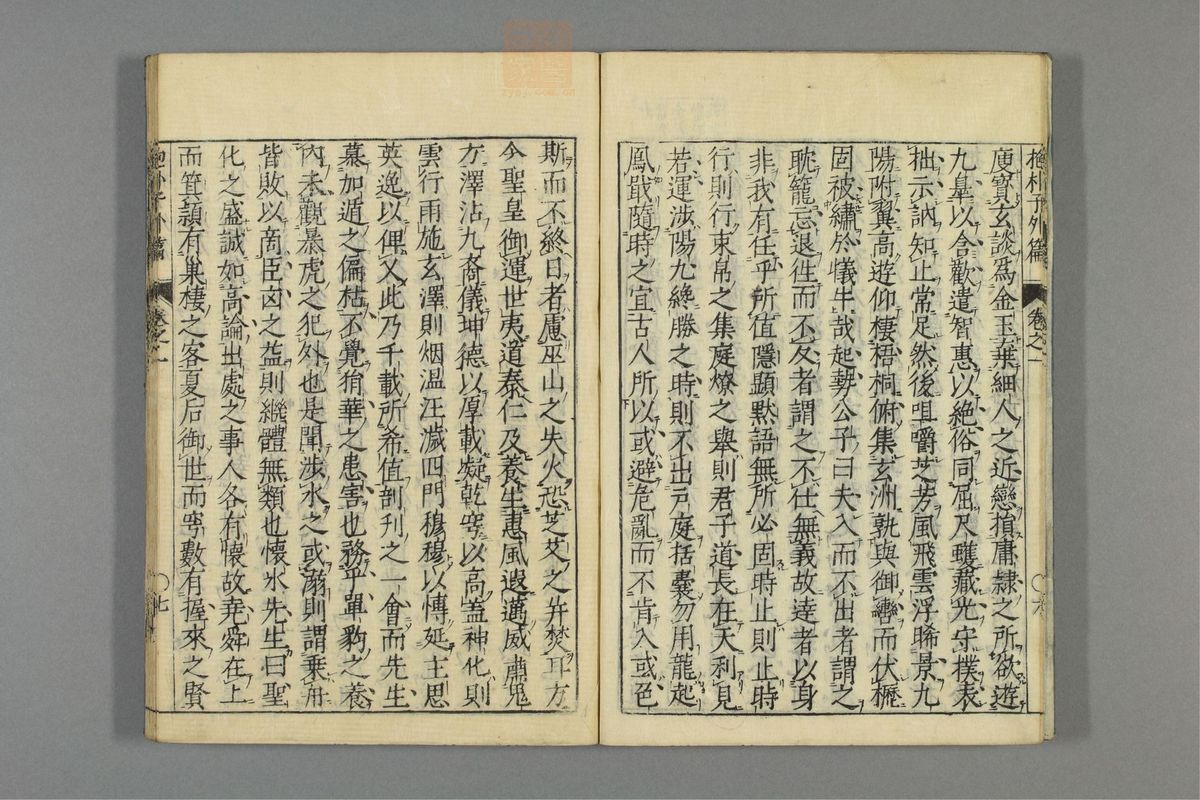 抱朴子外篇 卷之一 〇六
庾寶玄談爲金玉棄細人之近戀捐庸隷之所欲遊
九皐以含歡遣智惠以絶俗同屈尺蠖藏光守撲表
拙示訥知止常足然後咀嚼芝芳風飛雲浮晞景九
陽附翼高遊仰棲梧桐俯集玄洲孰與御轡而伏櫪
同被繡於犧牛哉起勢公子曰夫入而不出者謂之
耽寵忘退徃而不反者謂之不仕無義故達者以身
非我有任乎所值隱顯默語無所必固時止則止時
行則行束帛之集庭燎之舉則君子道長在天利見
若運涉陽九纔勝之時則不出戸庭括囊勿用龍起
鳳戢隨時之宜古人所以或避危亂而不肯入或色
斯而不終日者慮巫山之失火恐芝艾之并焚耳方
今聖皇御運世夷道泰仁及養生惠風遐邁威肅鬼
方澤沾九裔儀坤德以厚載擬乾穹以高蓋神化則
雲行雨施玄澤則烟溫汪濊四門穆穆以博延主思
英逸以俾乂此乃千載所希值剖判之一會而先生
慕加遁之偏枯不覺狷華之患害也務乎單豹之養
內未覩暴虎之犯外也是聞涉水之或溺則謂乗舟
皆敗以商臣凶之益則繼體無類也懷氷先生曰聖
化之盛誠如高論出處之事人各有懷故堯舜在上
而箕潁有巢棲之客夏后御世而穹數有握耒之賢
抱朴子外篇 卷之一 〇七